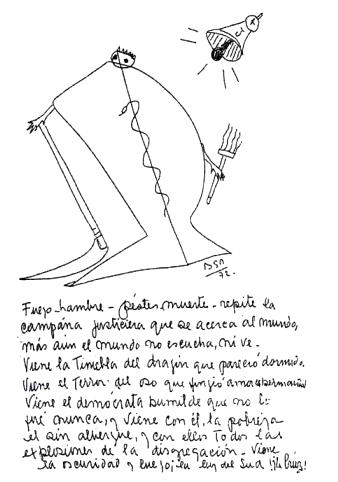 BSP
72.
Fuego - hambre - pestes, muerte - repite la
campana justiciera que se acerca al mundo,
más aún el mundo no escucha, ni ve -
Viene la Tiniebla del dragón que pareció dormido.
Viene el Terror del oso que fingió
Viene el demócrata humilde que no lo
fué nunca, y viene con él, la pobreza
el sin albergue, y con ellos Todos las
explosiones de la disgregación - Viene
la oscuridad y luego, la luz del Sud ¡la Cruz!